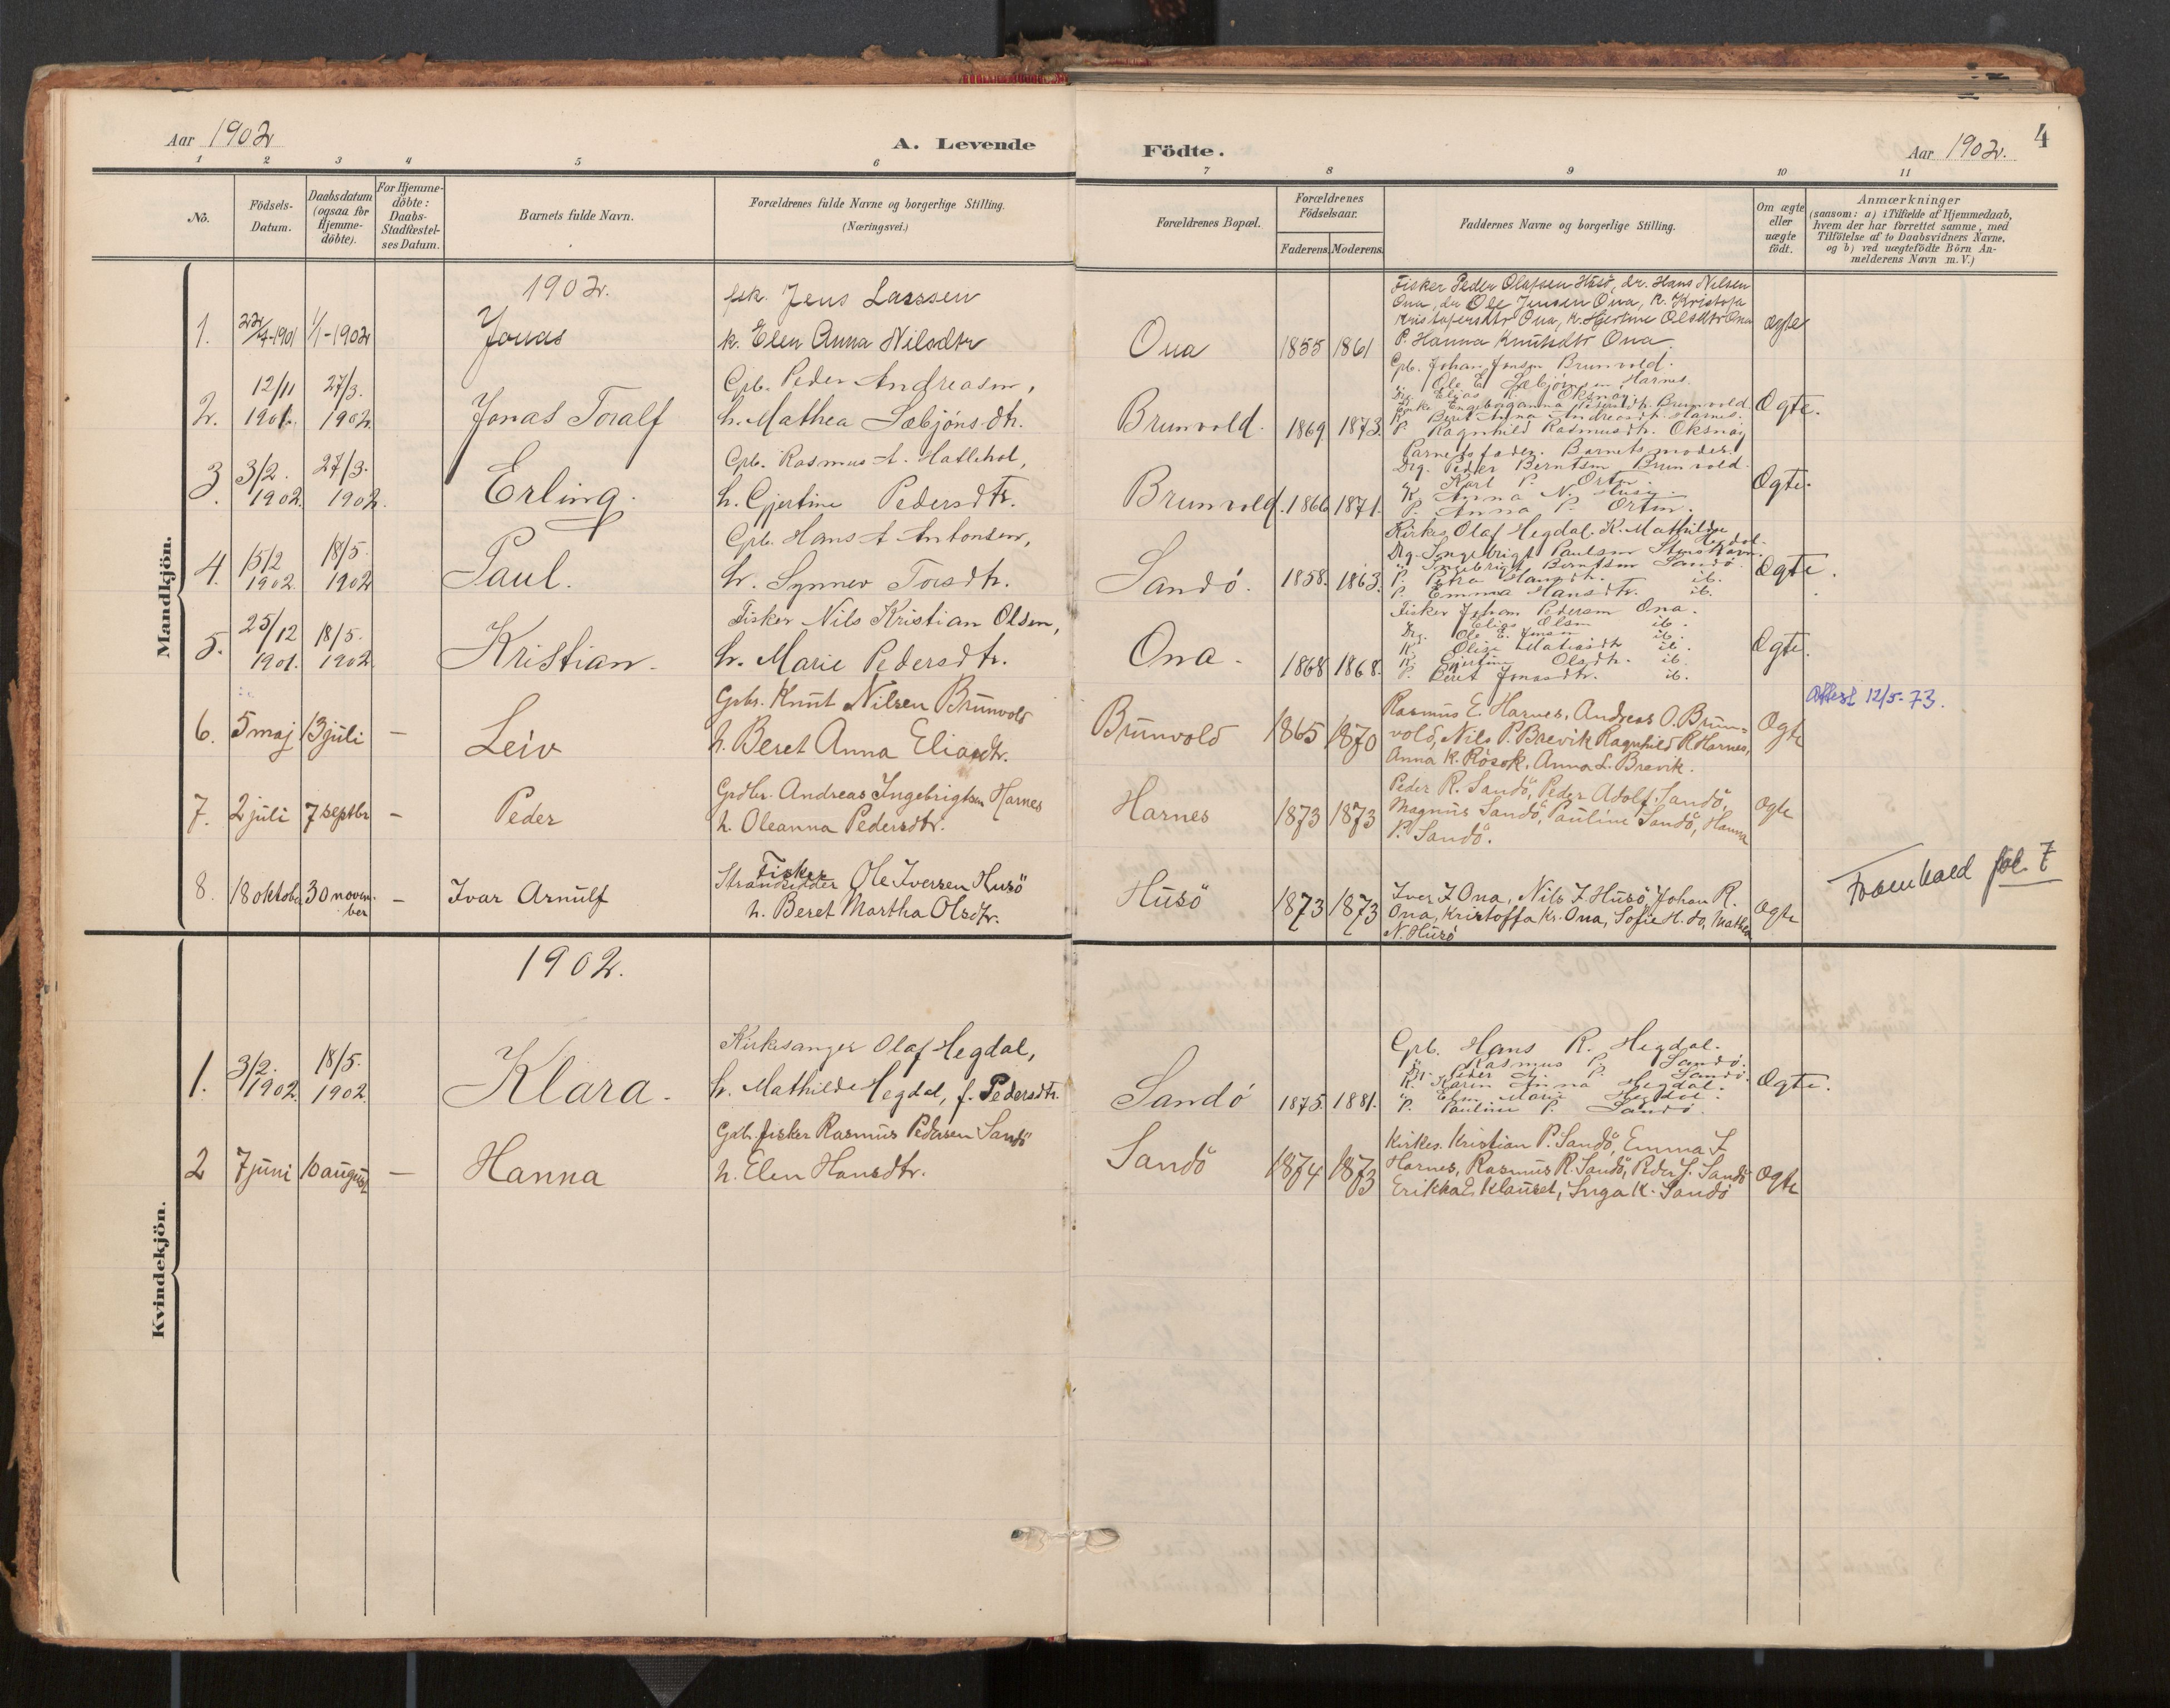 Aar 1902
A. Levende Födte.
Aar 1902. 4
1 2 3 4 5 6 7 8 9 10 11
No.
Födsels-Datum.
Daabsdatum (ogsaa for Hjemme-döbte).
For Hjemme-döbte: Daabs-Stadfæstel-ses Datum.
Barnets fulde Navn.
Forældrenes fulde Navne og borgerlige Stilling.
(Næringsvei.)
Forældrenes Bopæl.
Forældrenes Födselsaar.
Faderens. Moderens.
Faddernes Navne og borgerlige Stilling.
Om ægte eller uægte födt.
Anmærkninger
(saasom: a) i Tilfælde af Hjemmedaab,
hvem der har forrettet samme, med
Tilföielse af to Daabsvidners Navne,
og b) ved uægtefödte Börn An-
melderens Navn m. V.)
Mandkjön.
1902.
1. 1/1-1902 Jonas
fisk. Jens Larssen
k. Elen Anna Nilsdtr
Ona 1855 1861
Fisker Peder Olafsen Husö, dr. Hans Nilsen
Ona, dr Ole Jensen Ona, K. Kristofa
Kristofersdtr Ona, K. Gjertine Olsdtr Ona
P. Hanna Knutsdtr Ona.
ægte
2. 12/11 1901. 27/3. 1902. Jonas Toralf
Gpb. Peder Andreasen,
h. Mathea Sæbjönsdtr.
Brunvold. 1869 1873.
Gpb. Johan Jonsen Brunvold.
" Ole E. Sæbjörnsen Harnes.
Drg. Elias K. Oksnäy.
Enke Engeborganna Pedersdtr. Brunvold.
K. Beret Anna Andreasdtr. Harnes.
P. Ragnhild Rasmusdtr. Oksnäy
Ogte.
3. 3/2. 1902. 27/3. 1902. Erling.
Gpb. Rasmus A. Hatlehol,
h. Gjertine Pedersdtr.
Brunvold. 1866 1871.
Barnets fader. Barnets moder.
Drg. Peder Berntsen Brunvold.
" Karl P. Orten.
K. Anna N. Husö.
P. Anna P. Orten.
Ogte.
4. 15/2 1902. 18/5. 1902 Paul.
Gpb. Hans A Antonsen,
h. Synnev Torsdtr.
Sandö. 1858. 1863.
Kirkes. Olaf Hegdal. K. Mathilde Hegdal.
Drg. Ingebrigt Paulsen Stenshavn.
" Ingebrigt Berntsen Sandö.
P. Petra Hansdtr. ib.
P. Emma Hansdtr. ib.
Ogte.
5. 25/12 1901. 18/5. 1902 Kristian.
Fisker Nils Kristian Olsen,
h. Marie Pedersdtr.
Ona. 1868 1868.
Fisker Johan Pedersen Ona.
" Elias Olsen ib.
Drg. Ole E. Jensen ib.
K. Olise Matiasdtr ib.
K. Gjertine Olsdtr. ib.
P. Beret Jonasdtr. ib.
Ogte.
6. 5 maj 13 juli — Leiv
Gpbr. Knut Nilsen Brunvold
h. Beret Anna Eliasdtr.
Brunvold 1865 1870
Rasmus E. Harnes, Andreas O. Brun-
vold, Nils P. Brevik Ragnhild R Harnes,
Anna K. Rösok, Anna L. Brevik.
Ogte
Attest 12/5-73.
7. 2 juli 7 septbr — Peder
Grdbr. Andreas Ingebrigtsen Harnes
h. Oleanna Pedersdtr.
Harnes 1873 1873
Peder R. Sandö, Peder Adolf Sandö,
Magnus Sandö, Pauline Sandö, Hanna
P. Sandö.
Ogte
8. 18 oktobr 30 novem-ber — Ivar Arnulf
Fisker
Strandsidder Ole Iversen Husö
h. Beret Martha Olsdtr.
Husö 1873 1873
Iver I Ona, Nils I Husö, Johan R.
Ona, Kristoffa Kr. Ona, Sofie H. do, Mathea
N. Husö
Ogte
Framhald fol. 7
Kvindekjön.
1902.
1. 3/2. 1902. 18/5. 1902. Klara.
Kirkesanger Olaf Hegdal,
h. Mathilde Hegdal, f. Pedersdtr.
Sandö 1875. 1881.
Gpb. Hans R. Hegdal.
" Rasmus P. Sandö.
Dr. Peter A. P. Sandö.
K. Karen Anna Hegdal.
" Elen Marie Hegdal.
P. Pauline P. Sandö.
Ogte.
2 7 juni 10 august — Hanna
Gab. fisker Rasmus Pedersen Sandö
h. Elen Hansdtr.
Sandö 1874 1873
Kirkes. Kristian P. Sandö, Emma I.
Harnes, Rasmus R. Sandö, Peder J. Sandö
Erikka E Klauset, Inga K. Sandö
Ogte